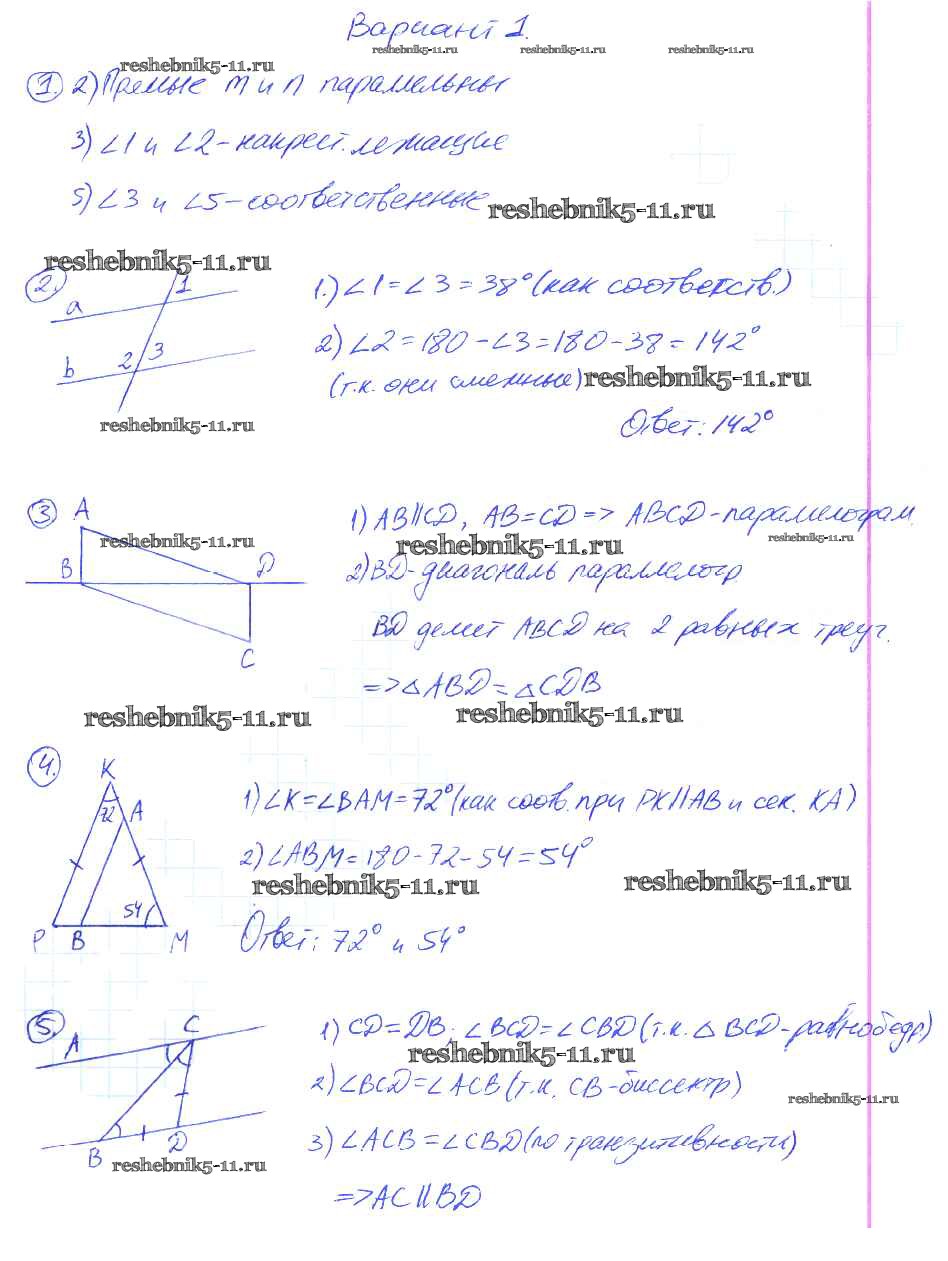 Вариант 1.
reshebnik5-11.ru reshebnik5-11.ru reshebnik5-11.ru
reshebnik5-11.ru
1. 2) Прямые m и n параллельны
3) ∠1 и ∠2 - накрест. лежащие
5) ∠3 и ∠5 - соответственные
reshebnik5-11.ru
reshebnik5-11.ru
2.
a
1
b
2 3
1.) ∠1 = ∠3 = 38° (как соответств.)
2) ∠2 = 180 - ∠3 = 180 - 38 = 142°
(т.к. они смежные)
reshebnik5-11.ru
Ответ: 142°
reshebnik5-11.ru
3
A
B
D
C
1) AB||CD, AB = CD => ABCD - параллелограм.
reshebnik5-11.ru reshebnik5-11.ru reshebnik5-11.ru
2) BD - диагональ параллелогр.
BD делит ABCD на 2 равных треуг.
=> △ABD = △CDB
reshebnik5-11.ru reshebnik5-11.ru
4.
K
72
A
54
P B M
1) ∠K = ∠BAM = 72° (как соотв. при PK||AB и сек. KA)
2) ∠ABM = 180 - 72 - 54 = 54°
reshebnik5-11.ru reshebnik5-11.ru
Ответ: 72° и 54°
5.
A
C
B
D
1) CD = DB; ∠BCD = ∠CBD (т.к. △ BCD - равнобедр)
reshebnik5-11.ru
2) ∠BCD = ∠ACB (т.к. CB - биссектр)
reshebnik5-11.ru
3) ∠ACB = ∠CBD (по транзитивности)
reshebnik5-11.ru
=> AC||BD